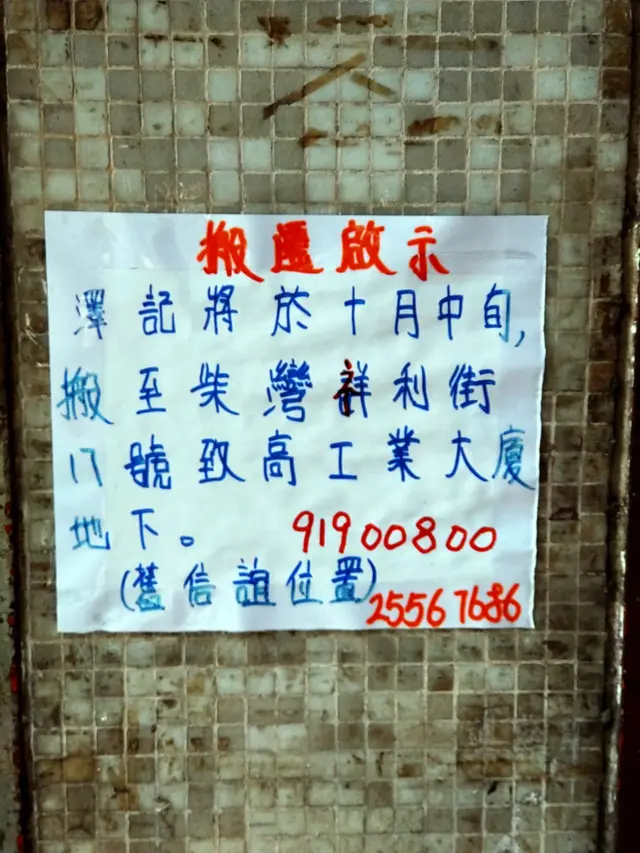 搬遷啟示
澤記將於十月中旬,
搬至柴灣祥利街
17號致高工業大廈
地下。 91900800
(舊信誼位置)
25567686